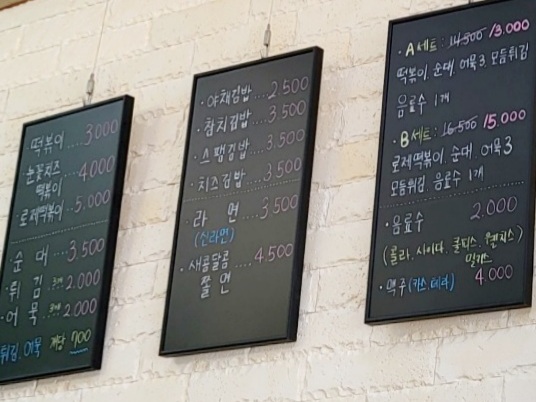 떡볶이 ... 3000
눈꽃치즈 떡볶이 .... 4.000
로제떡볶이 .. 5.000
순 대 ... 3.500
튀 김 3개 2.000
어 묵 3개 2.000
튀김. 어묵 개당 700
· 야채김밥 ... 2.500
· 참치김밥 ... 3.500
· 스팸김밥 ... 3.500
· 치즈김밥 ... 3.500
· 라 면 ... 3.500
(신라면)
· 새콤달콤 쫄 면 .... 4.500
· A세트 : 14.500 13.000
떡볶이. 순대. 어묵3. 모듬튀김
음료수 1개
· B세트 : 16.500 15.000
로제떡볶이 순대. 어묵3
모듬튀김 음료수 1개
· 음료수 2.000
(콜라. 사이다. 쿨피스.
밀키스)
· 맥주 (카스. 테라) 4.000